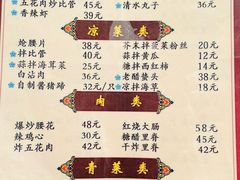 ★五花肉炒比管 45元 ★清水丸子 36元
香辣虾 39元
凉菜类
炝腰片 38元 芥末拌菠菜粉丝 20元
★拌比管 40元 蒜拌黄瓜 12元
★蒜拌海茸菜 25元 糖拌西红柿 14元
白沾肉 36元 ★老醋蛰头 38元
★自制酱猪蹄 32元/只 ★凉拌海草 18元
肉类
爆炒腰花 48元 红烧大肠 58元
辣鸡心 30元 糖醋里脊 45元
炸五花肉 42元 干炸里脊 42元
青菜类